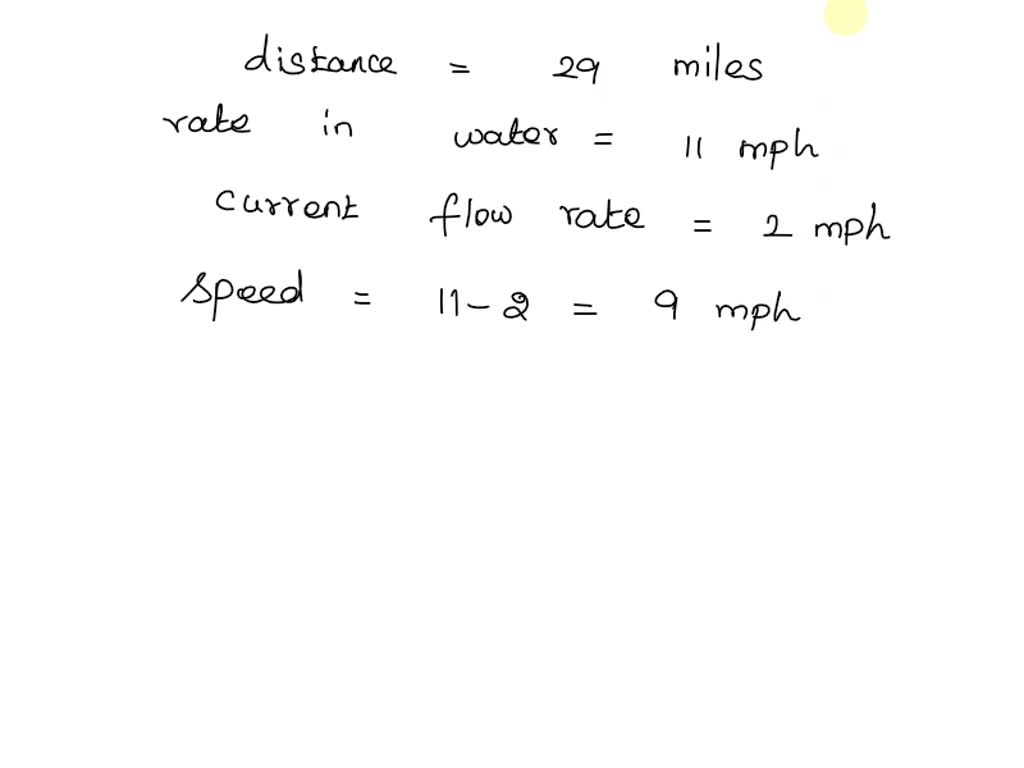 distance = 29 miles
rate in water = 11 mph
current flow rate = 2 mph
speed = 11 - 2 = 9 mph